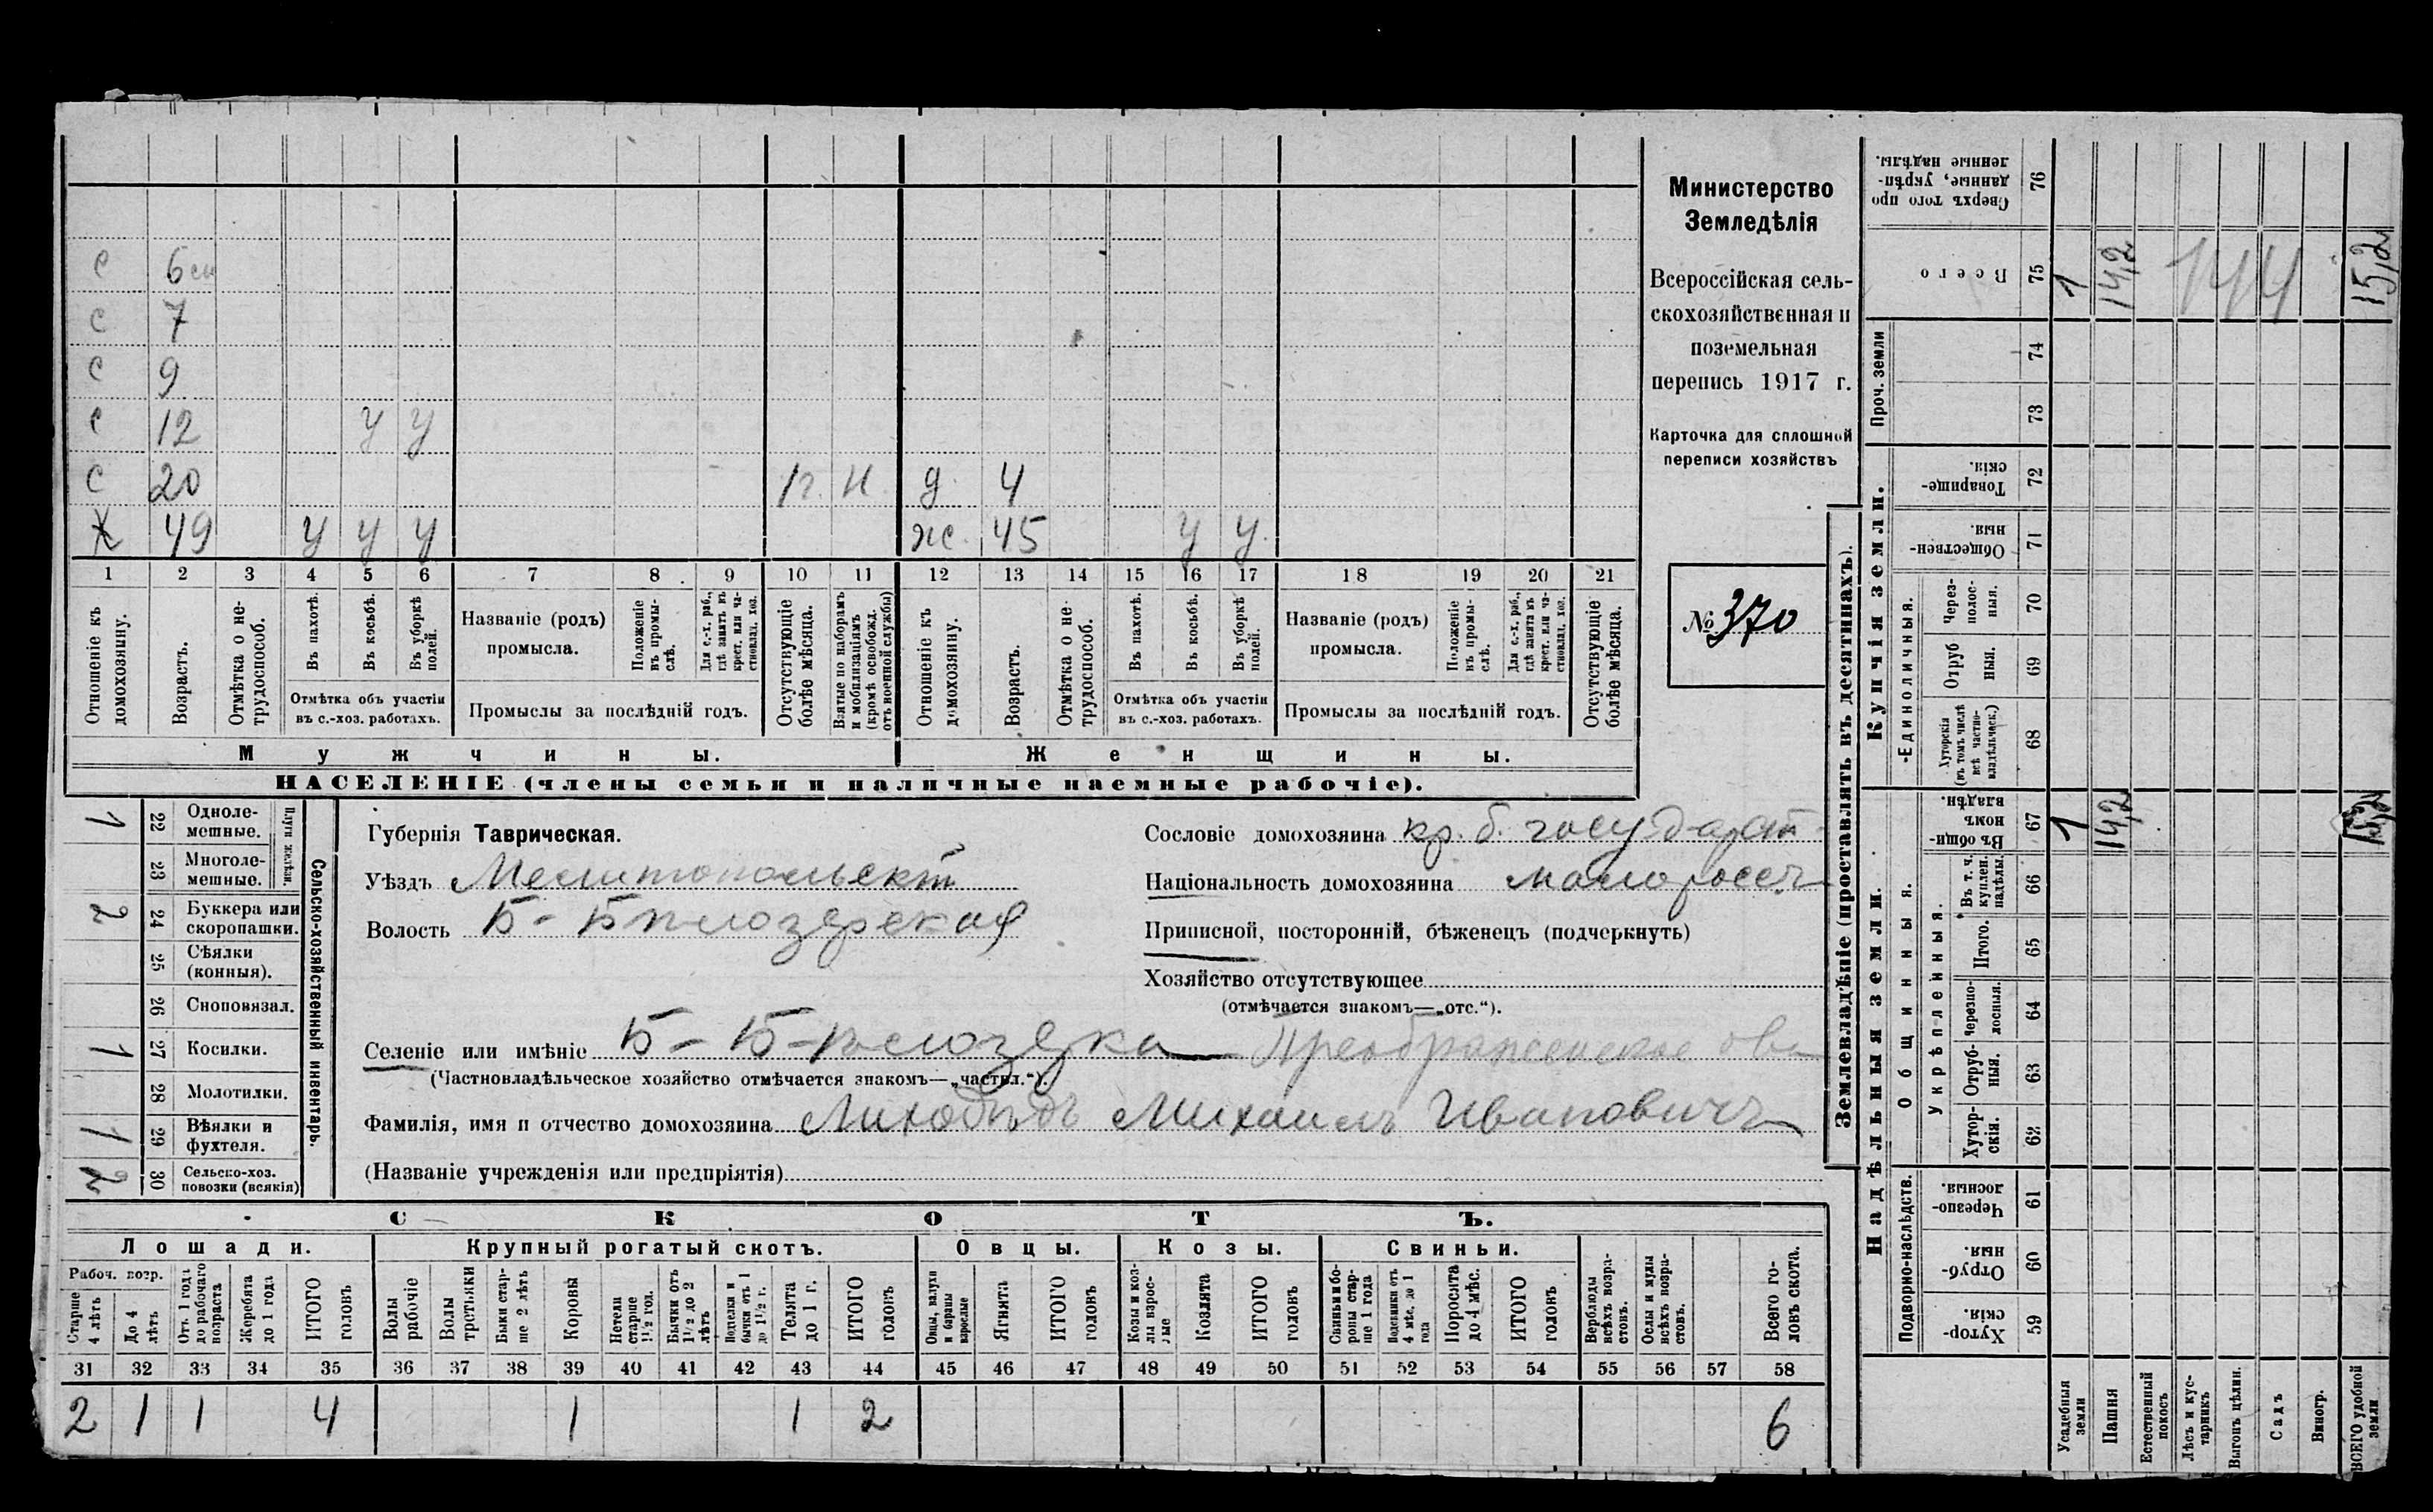 с 6
с 7
с 9
с 12 у у
с 20 1г. н д. 4
х 49 у у у ж. 45 у у
1 2 3 4 5 6 7 8 9 10 11 12 13 14 15 16 17 18 19 20 21
Отношеніе къ домохозяину.
Возрастъ.
Отмѣтка о нетрудоспособ.
Въ пахотѣ.
Въ косьбѣ.
Въ уборкѣ полей.
Отмѣтка объ участіи
въ с.-хоз. работахъ.
Названіе (родъ)
промысла.
Положеніе въ промыслѣ.
Для с.-х. раб., гдѣ занятъ въ крест. или частновлад. хоз.
Промыслы за послѣдній годъ.
Отсутствующіе болѣе мѣсяца.
Взятые по наборамъ и мобилизаціямъ (кромѣ освобожд. отъ военной службы)
Отношеніе къ домохозяину.
Возрастъ.
Отмѣтка о нетрудоспособ.
Въ пахотѣ.
Въ косьбѣ.
Въ уборкѣ полей.
Отмѣтка объ участіи
въ с.-хоз. работахъ.
Названіе (родъ)
промысла.
Положеніе въ промыслѣ.
Для с.-х. раб., гдѣ занята въ крест. или частновлад. хоз.
Промыслы за послѣдній годъ.
Отсутствующіе болѣе мѣсяца.
Мужчины. Женщины.
НАСЕЛЕНІЕ (члены семьи и наличные наемные рабочіе).
Министерство
Земледѣлія
Всероссійская сель-
скохозяйственная и
поземельная
перепись 1917 г.
Карточка для сплошной
переписи хозяйствъ
№ 370
Сельско-хозяйственный инвентарь.
Плуги желѣзн.
1 22 Одноле-
мешные.
23 Многоле-
мешные.
2 24 Буккера или
скоропашки.
25 Сѣялки
(конныя).
26 Сноповязал.
1 27 Косилки.
28 Молотилки.
1 29 Вѣялки и
фухтеля.
2 30 Сельско-хоз.
повозки (всякія)
Губернія Таврическая.
Уѣздъ Мелитопольскій
Волость Б-Бѣлозерская
Селеніе или имѣніе Б-Бѣлозерка Преображенское
(Частновладѣльческое хозяйство отмѣчается знакомъ—„частвл.“).
Фамилія, имя и отчество домохозяина Лиходѣдъ Михаилъ Ивановичъ
(Названіе учрежденія или предпріятія)
Сословіе домохозяина кр. б. государст
Національность домохозяина малоросс.
Приписной, посторонній, бѣженецъ (подчеркнуть)
Хозяйство отсутствующее
(отмѣчается знакомъ—„отс.“).
СКОТЪ.
Лошади. Крупный рогатый скотъ. Овцы. Козы. Свиньи.
Рабоч. возр.
Старше 4 лѣтъ
До 4 лѣтъ
Отъ 1 года до рабочаго возраста
Жеребята до 1 года
ИТОГО головъ
Волы рабочіе
Волы третьяки
Быки старше 2 лѣтъ
Коровы
Нетели старше 1½ год.
Бычки отъ 1½ до 2 лѣтъ
Подтелки и бычки отъ 1 до 1½ г.
Телята до 1 г.
ИТОГО головъ
Овцы, валухи и бараны взрослые
Ягнята
ИТОГО головъ
Козы и козлы взрослые
Козлята
ИТОГО головъ
Свиньи и бороны старше 1 года
Подсвинки отъ 4 мѣс. до 1 года
Поросята до 4 мѣс.
ИТОГО головъ
Верблюды всѣхъ возрастовъ.
Ослы и мулы всѣхъ возрастовъ.
Всего головъ скота.
31 32 33 34 35 36 37 38 39 40 41 42 43 44 45 46 47 48 49 50 51 52 53 54 55 56 57 58
2 1 1 4 1 1 2 6
Землевладѣніе (проставлять въ десятинахъ).
Купчія земли.
Надѣльныя земли.
Сверхъ того проданные, укрѣпленные надѣлы. 76
Всего 75 1 14,2 144 15,2
Проч. земли 74
73
Товарищескія. 72
Общественныя 71
Единоличныя.
Черезполосныя. 70
Отрубныя. 69
Хуторскія (въ томъ числѣ всѣ частновладѣльческ.) 68
Общинныя.
Въ общинномъ владѣн. 67 1 14,2 15,2
Укрѣпленныя.
Въ т. ч. куплен. надѣлы. 66
Итого. 65
Черезполосныя. 64
Отрубныя. 63
Хуторскія. 62
Подворно-наслѣдств.
Черезполосныя. 61
Отрубныя. 60
Хуторскія. 59
Усадебныя земли
Пашня
Естественный покосъ
Лѣсъ и кустарникъ
Выгонъ цѣлин.
Садъ
Виногр.
ВСЕГО удобной земли